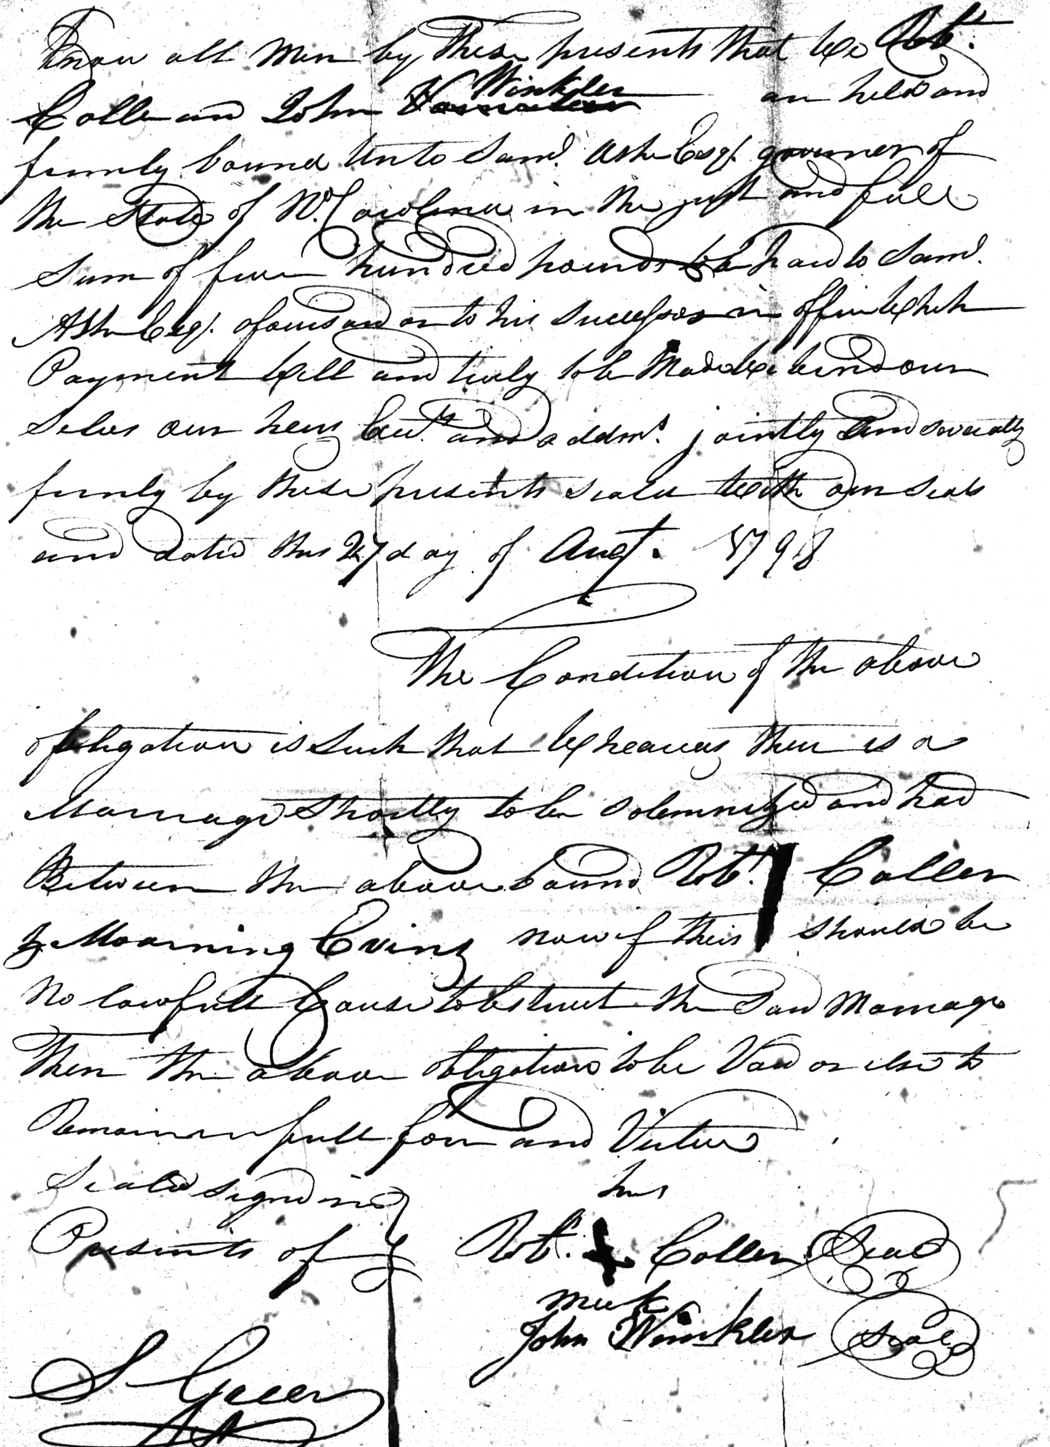 Know all Men by These presents that We Robt.
Coller and John Winkler are held and
firmly bound Unto Saml. Ashe Esqr. governer of
the State of No. Carolina in the just and full
Sum of five hundred pounds to be paid to Saml.
Ashe Esqr. aforesaid or to his Successors in office Which
Payment Well and truly to be Made We bind our
Selves our heirs Exrs. and addmrs. jointly and severally
firmly by these presents seald With our Seals
and dated this 27 day of Augt. 1798
The Condition of the above
obligation is Such that Whereas there is a
Marriage Shortly to be Solemnized and had
Between the above bound Robt. Coller
& Moarning Evins now if their should be
No lawfull Cause to obstruct the Said Marriage
Then the above obligation to be Void or else to
Remain in full force and Virtue
Seald Signd in his
Presents of Robt. Coller Seal
mark
John Winkler Seal
S Greer